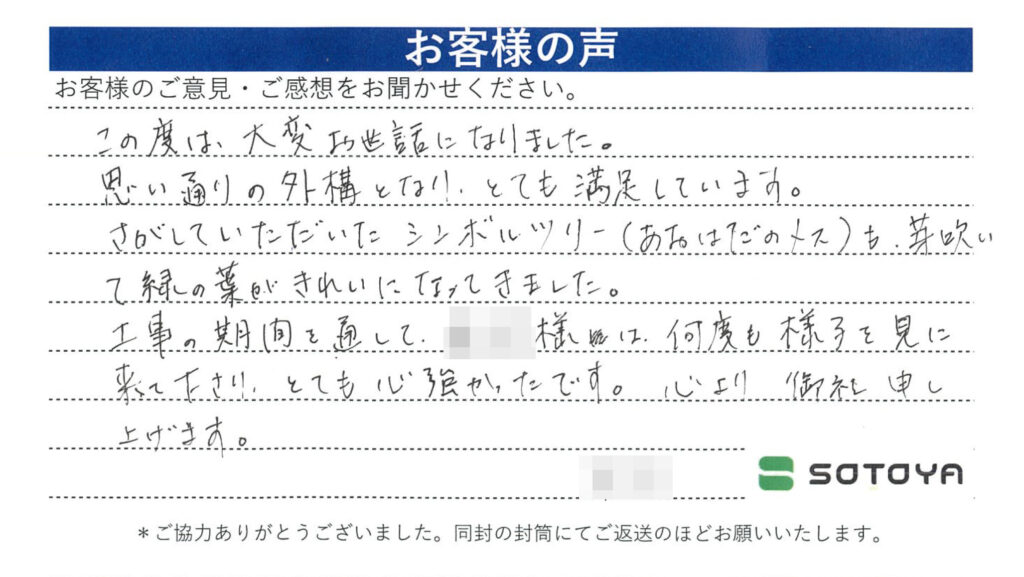 お客様の声
お客様のご意見・ご感想をお聞かせください。
この度は、大変お世話になりました。
思い通りの外構となり、とても満足しています。
さがしていただいたシンボルツリー(あおはだのメス)も、芽吹い
て緑の葉がきれいになってきました。
工事の期間を通して、様には、何度も様子を見に
来て下さり、とても心強かったです。心より御礼申し
上げます。
SOTOYA
*ご協力ありがとうございました。同封の封筒にてご返送のほどお願いいたします。